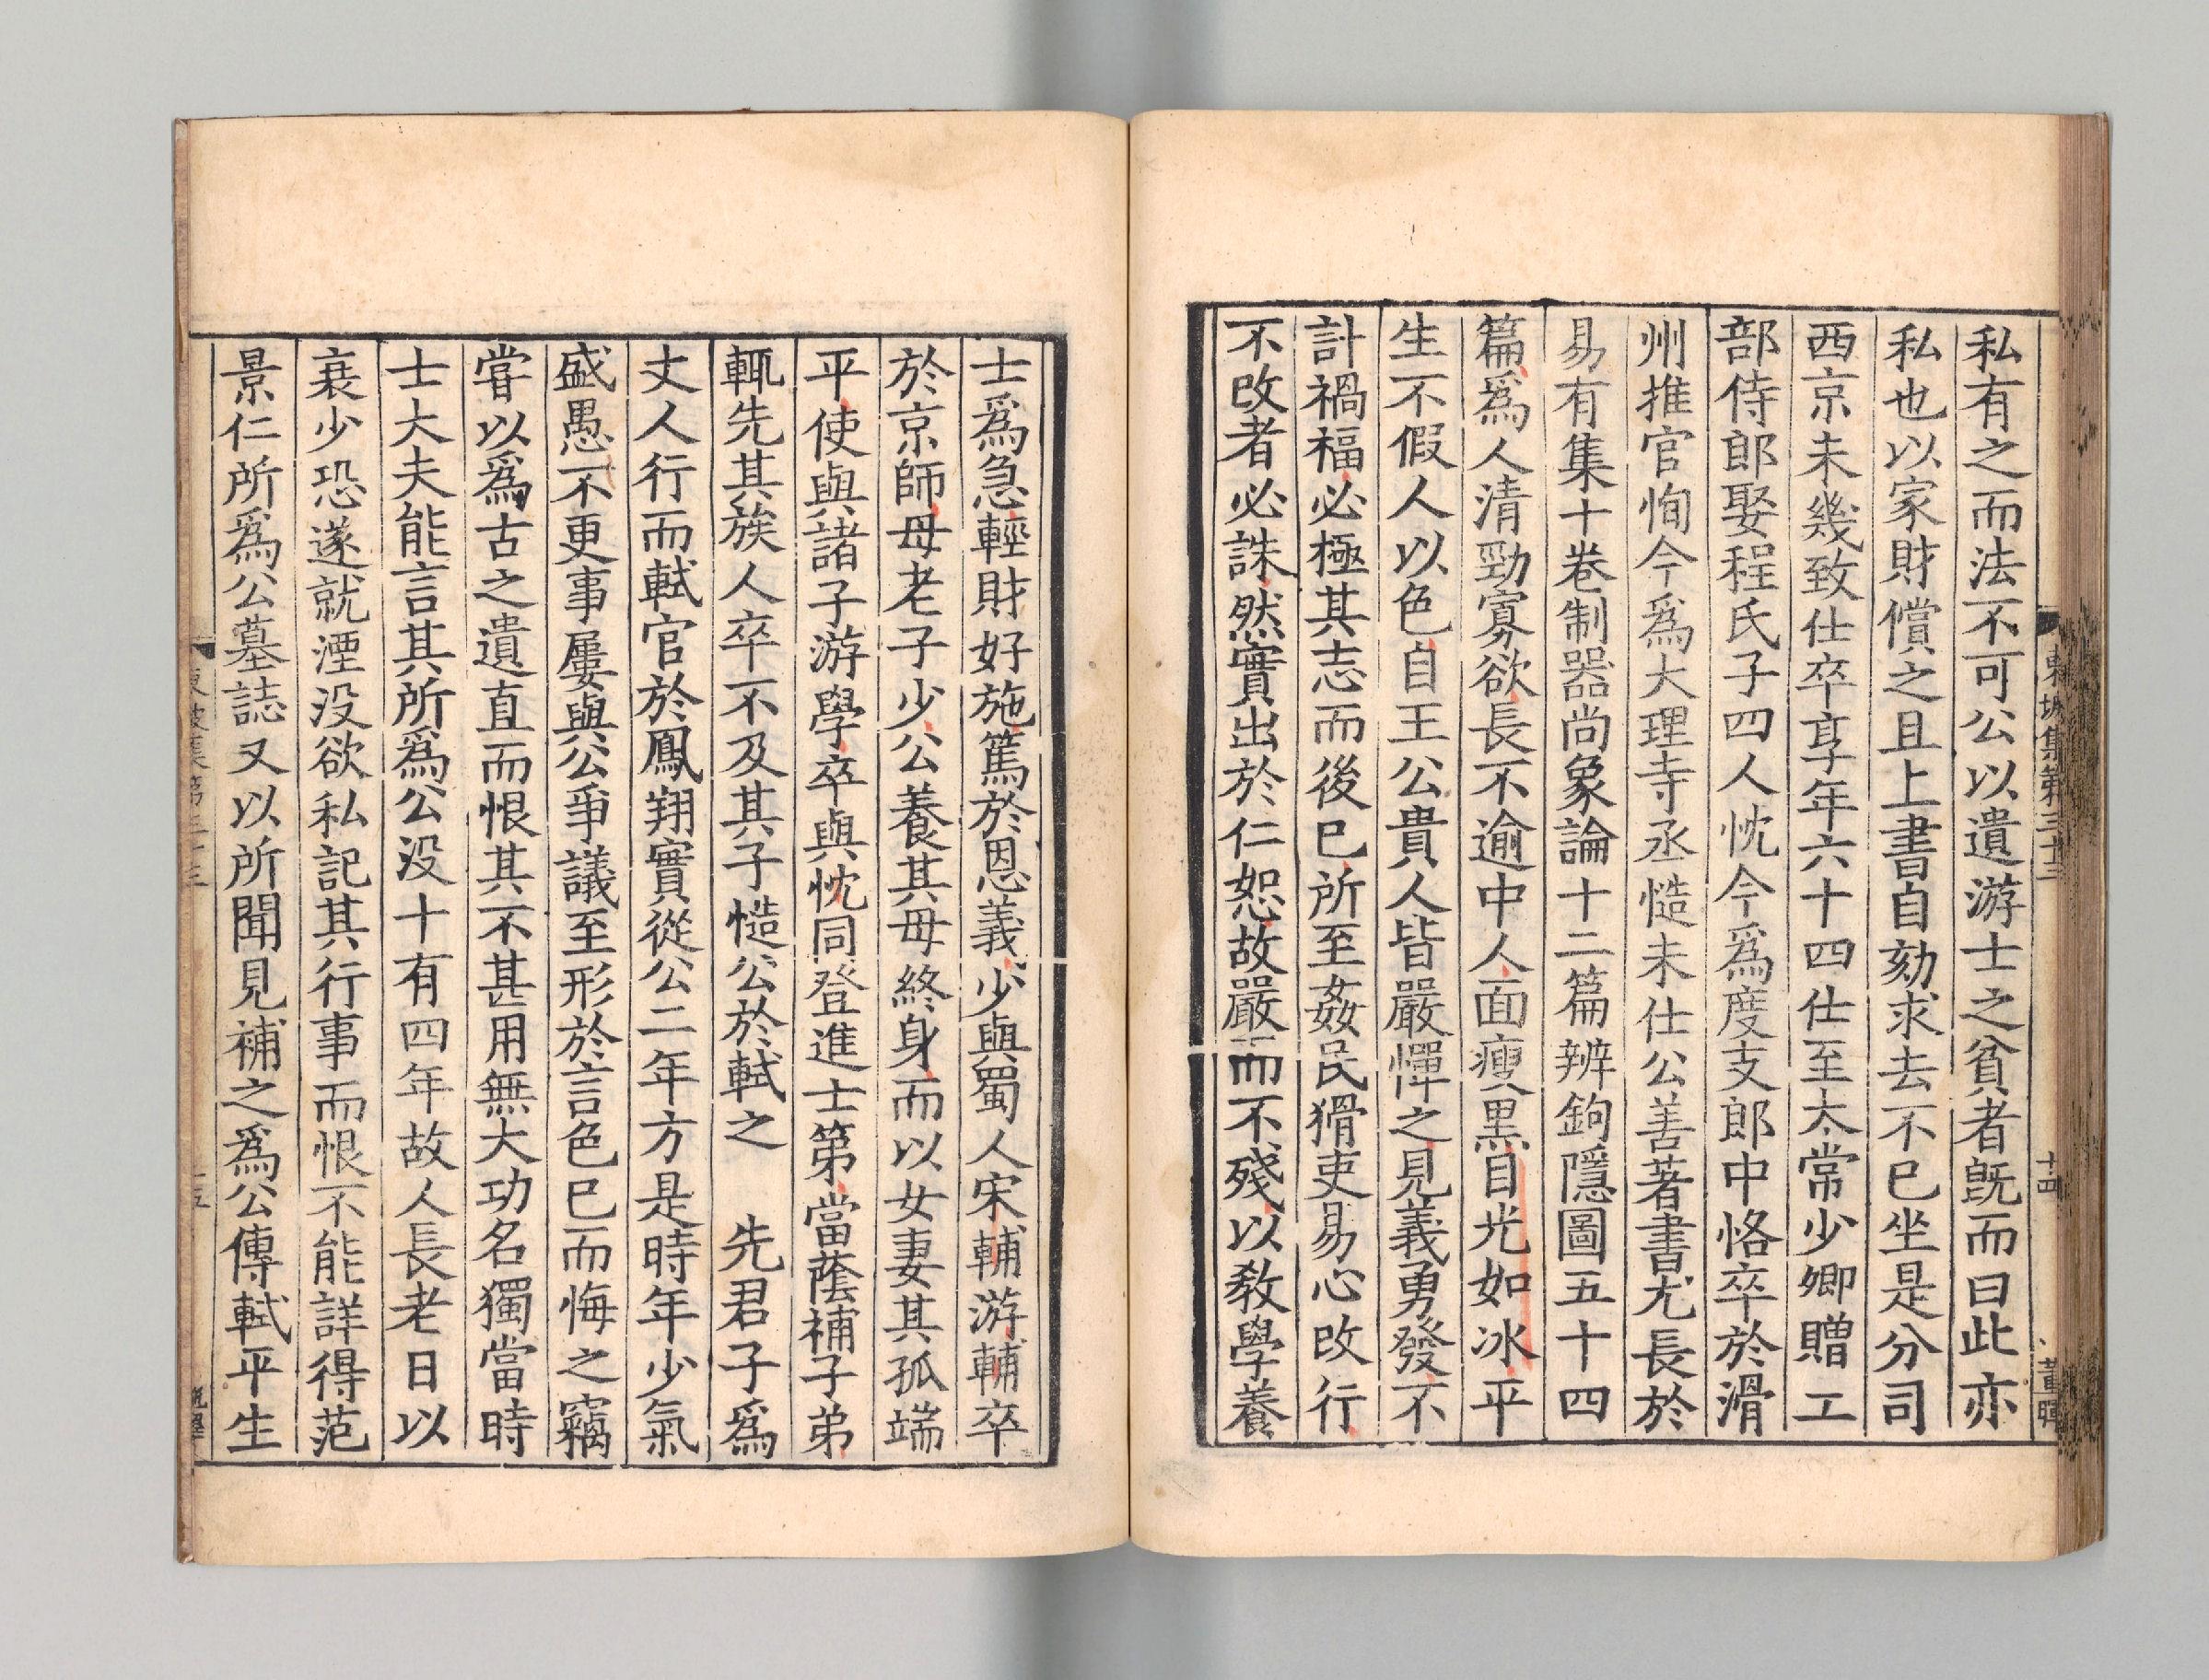 東坡集第三十三
十四
董暉
私有之而法不可公以遺游士之貧者旣而曰此亦
私也以家財償之且上書自劾求去不已坐是分司
西京未幾致仕卒享年六十四仕至太常少卿贈工
部侍郎娶程氏子四人忱今爲度支郎中恪卒於滑
州推官恂今爲大理寺丞慥未仕公善著書尤長於
易有集十卷制器尚象論十二篇辨鉤隱圖五十四
篇爲人清勁寡欲長不逾中人面瘦黑目光如冰平
生不假人以色自王公貴人皆嚴憚之見義勇發不
計禍福必極其志而後已所至姦民猾吏易心改行
不改者必誅然實出於仁恕故嚴而不殘以敎學養
士爲急輕財好施篤於恩義少與蜀人宋輔游輔卒
於京師母老子少公養其母終身而以女妻其孤端
平使與諸子游學卒與忱同登進士第當蔭補子弟
輒先其族人卒不及其子慥公於軾之　先君子爲
丈人行而軾官於鳳翔實從公二年方是時年少氣
盛愚不更事屢與公爭議至形於言色已而悔之竊
嘗以爲古之遺直而恨其不甚用無大功名獨當時
士大夫能言其所爲公没十有四年故人長老日以
衰少恐遂就湮没欲私記其行事而恨不能詳得范
景仁所爲公墓誌又以所聞見補之爲公傳軾平生
東坡集第三十三
十五